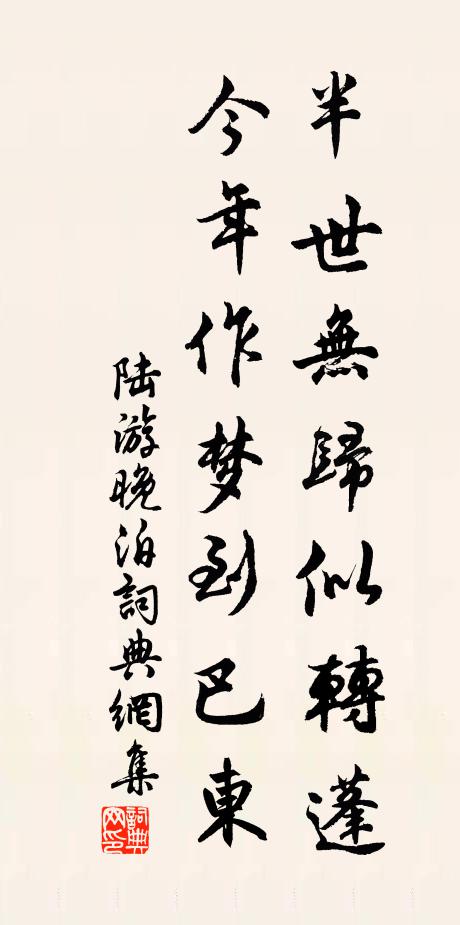 半世無歸似轉蓬
今年作梦到巴東
陆游晚泊詞典網集
詞典網印